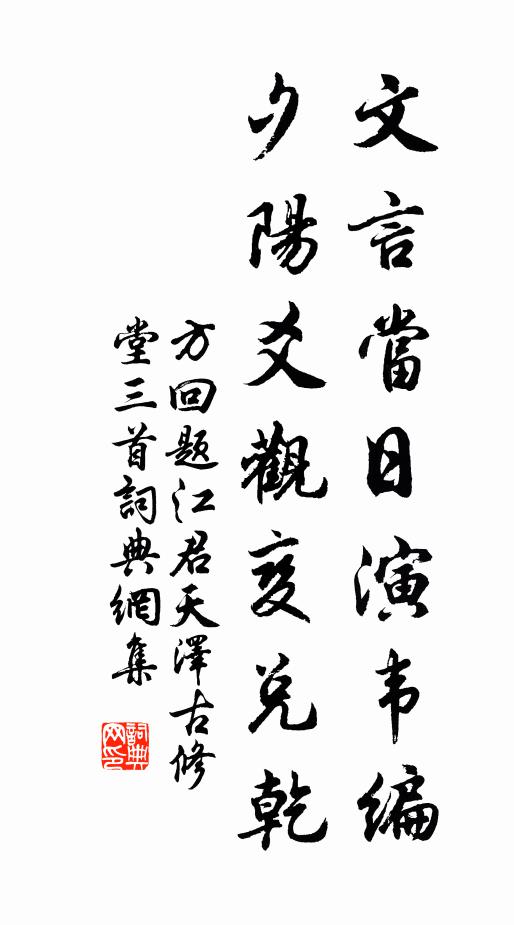 文言當日演韦编
夕陽爻觀变兑乾
方回题江君天澤古修
堂三首詞典網集
詞典
网印